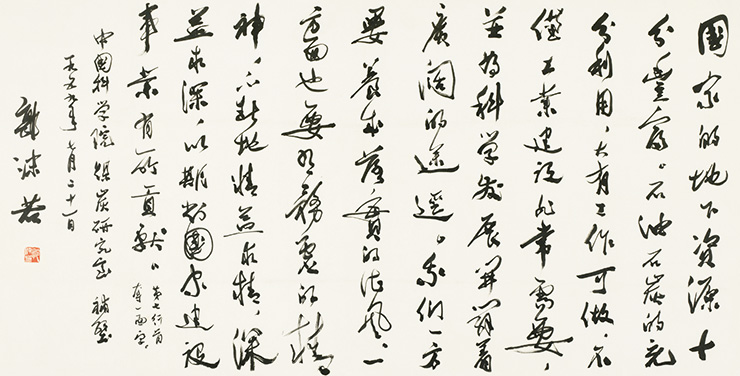 國家的地下資源十
分豐富。石油石炭的充
分利用,大有工作可做,不
僅工業建設非常需要,
並為科學發展開闢着
廣闊的途逕。我們一方
要養成落實的作風,一
方面也要有務虛的精
神,不斷地精益求精,深
益求深,以期對國家建設
事業有所貢獻。
第七行首
奪一面字
中國科學院煤炭研究室 補壁
一九五九年七月二十一日
郭沫若